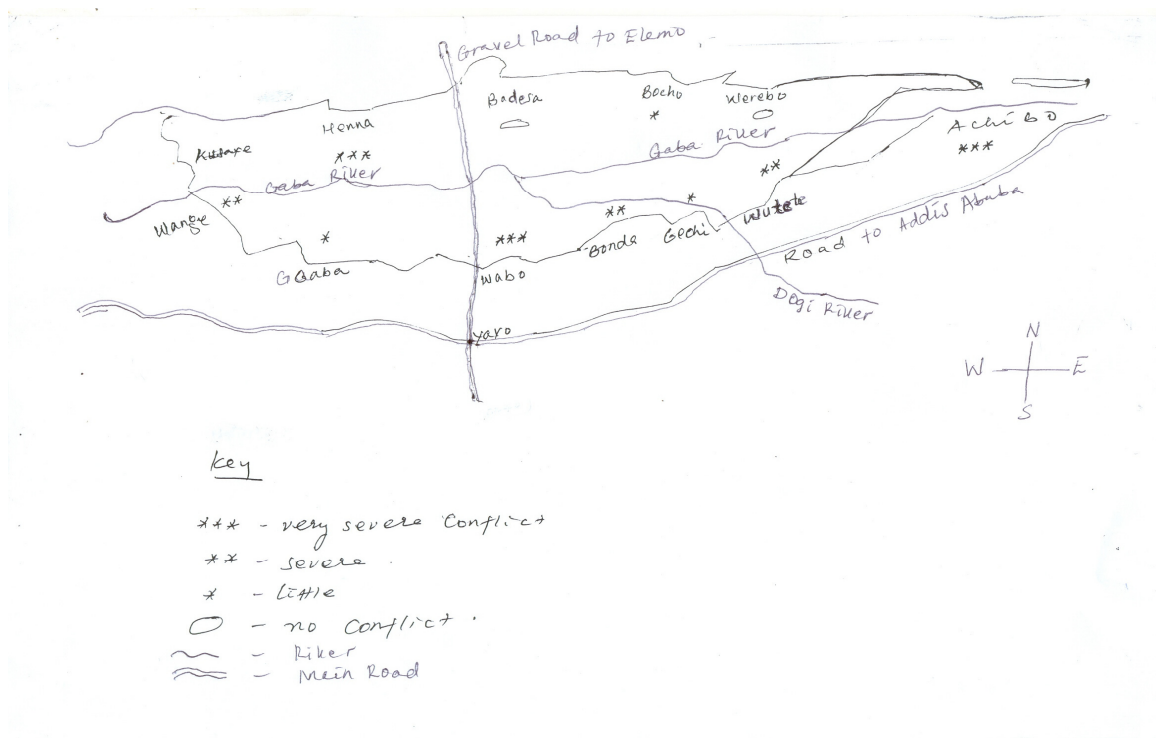 Gravel Road to Elemo
Badesa
Bocho
Werebo
*
Henna
***
Gaba River
Achibo
***
Gaba River
**
**
*
**
Wange
*
***
Gechi
Bonda
Road to Addis Ababa
Gaba
Wabo
Degi River
Yaro
N
W E
S
Key
*** - very severe Conflict
** - severe
* - little
- no conflict.
- River
- Main Road